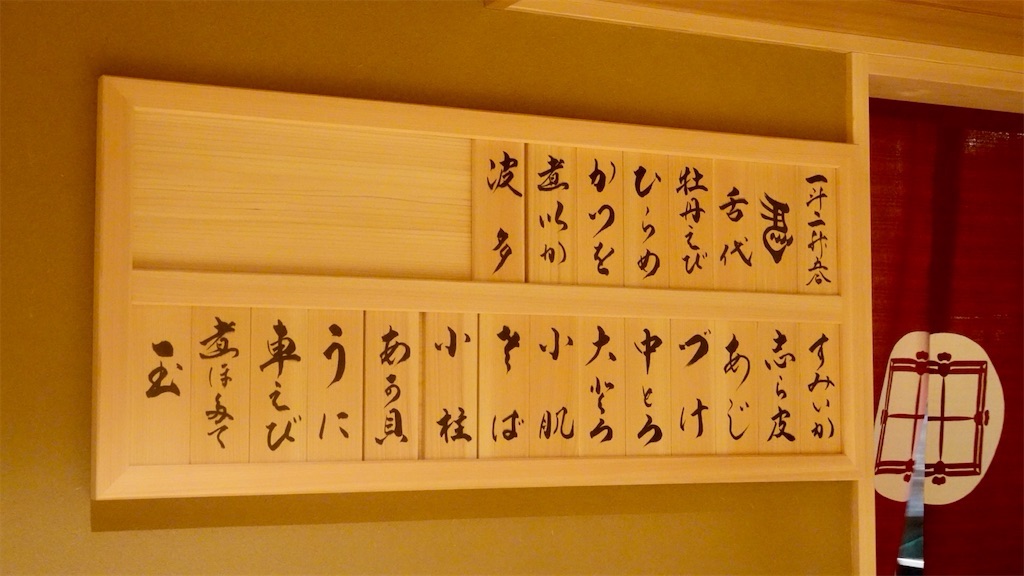 一斗二升五合
舌代
牡丹えび
ひらめ
かつを
煮いか
波多
すみいか
志ら皮
あじ
づけ
中とろ
大とろ
小肌
さば
小柱
あか貝
うに
車えび
煮ほたて
玉